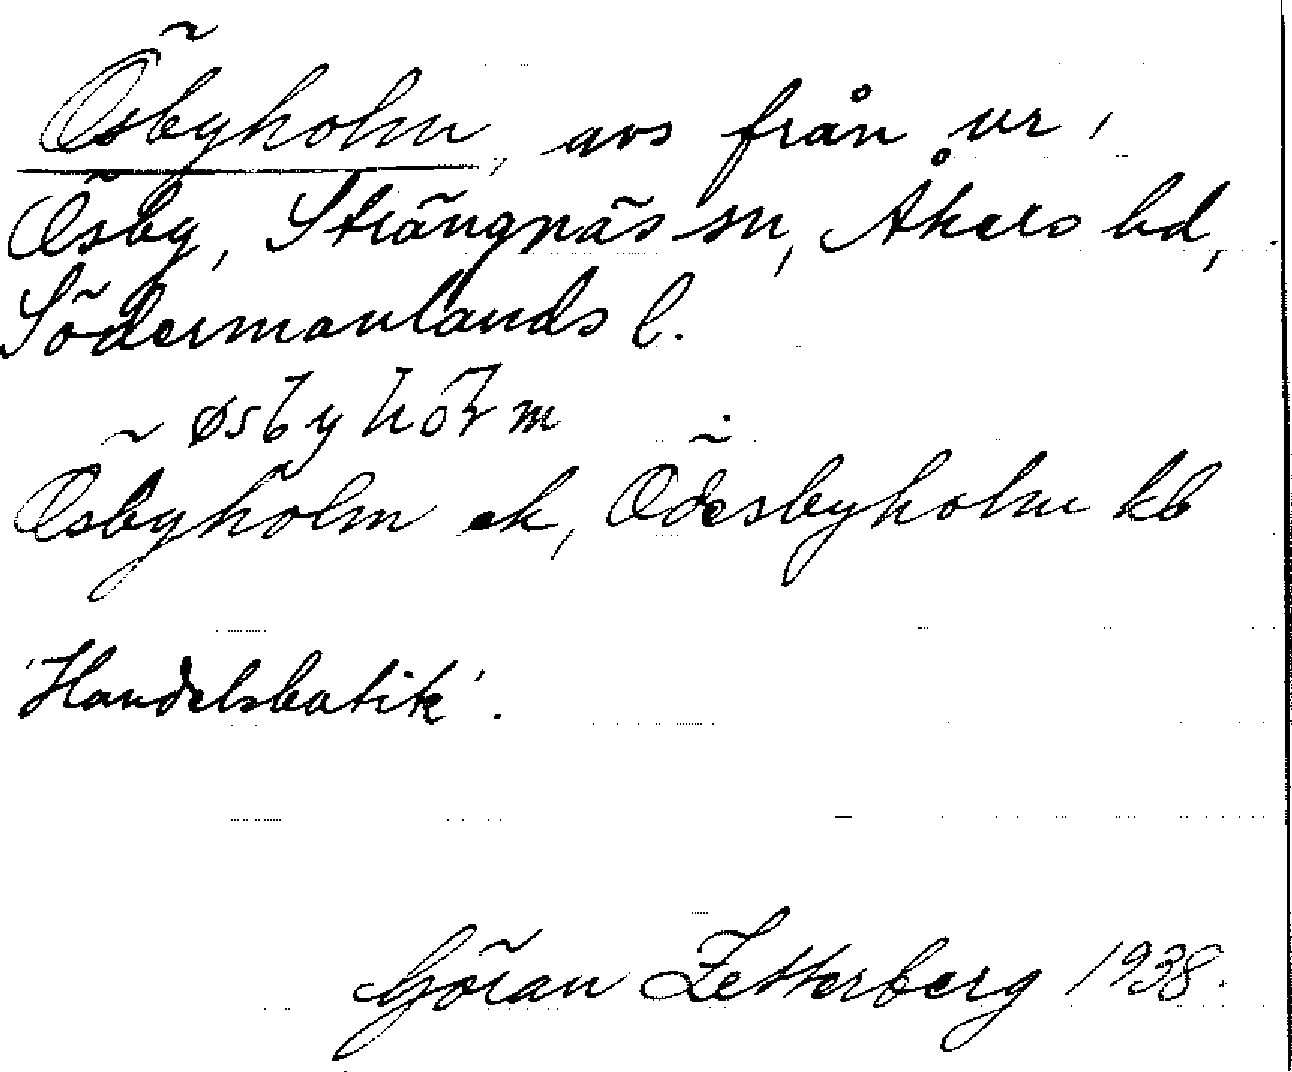 Ösbyholm, avs från nr 1
Ösby, Strängnäs sn, Åkers hd,
Södermanlands l.
øsbyhòĺm
Ösbyholm ek, Ödesbyholm kb
'Handelsbutik'.
Göran Zetterberg 1938.